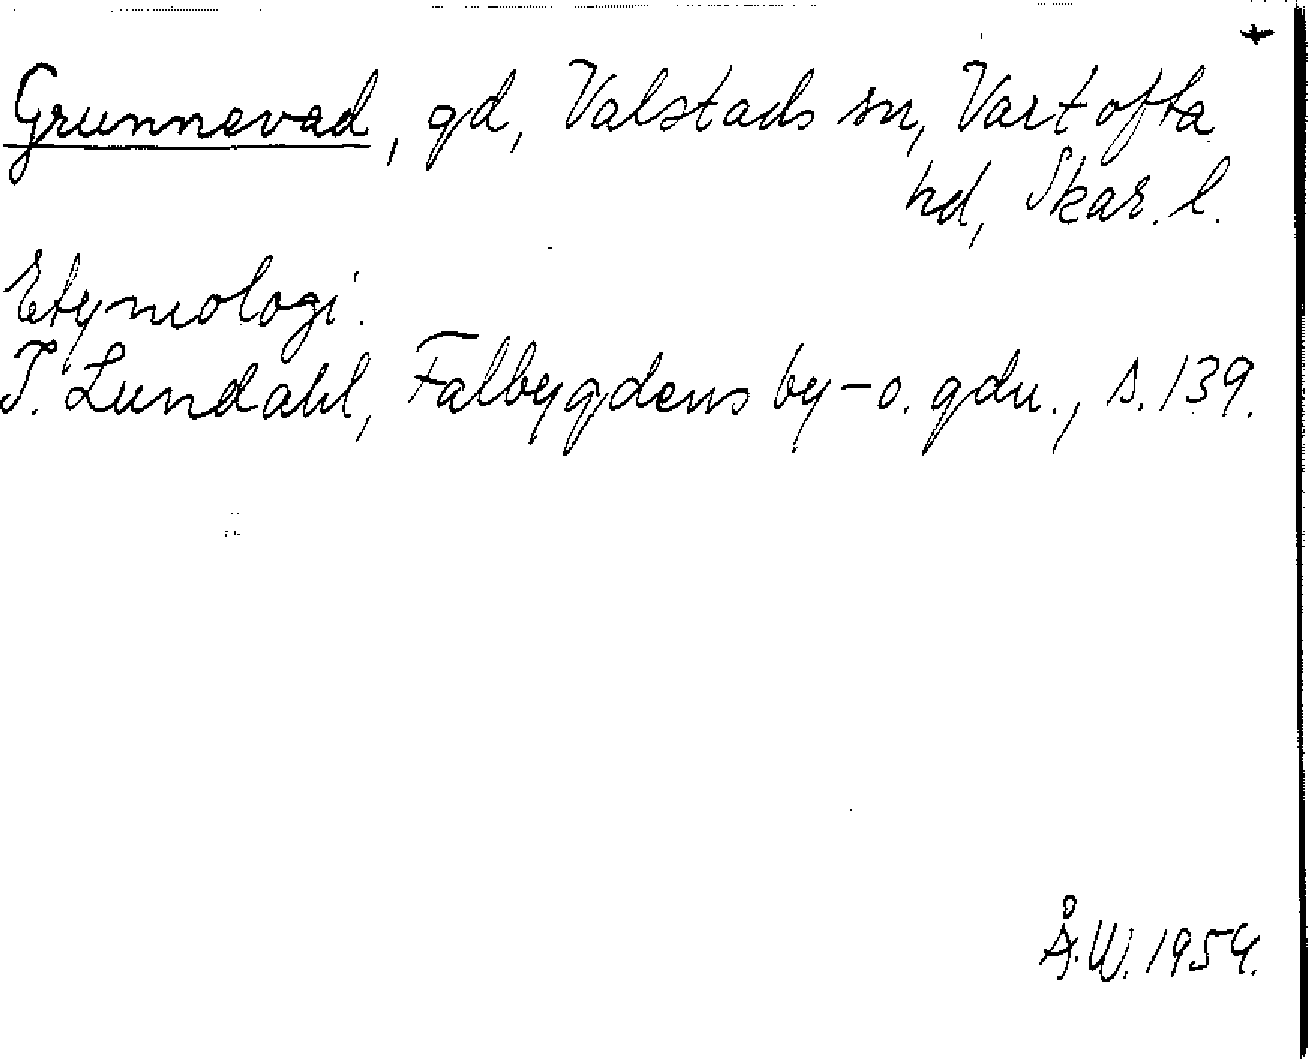 Grunnevad, gd, Valstads sn, Vartofta
hd, Skar. l.
Etymologi.
I. Lundahl, Falbygdens by- o. gdn., s. 139.
Å.W. 1954.